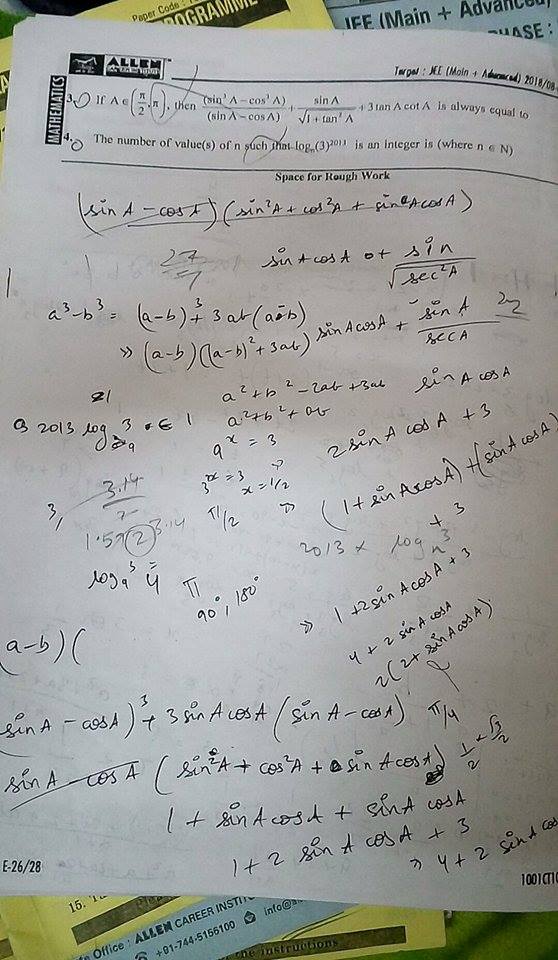 Paper Code :
PROGRAMME
JEE (Main + Advanced)
PHASE :
ALLEN
Target : JEE (Main + Advanced) 2018/08-
MATHEMATICS
3. If A ∈ (π/2, π), then (sin³ A – cos³ A)/(sin A – cos A) + sin A/√(1 + tan² A) + 3 tan A cot A is always equal to
4. The number of value(s) of n such that logₙ(3)²⁰¹³ is an integer is (where n ∈ N)
Space for Rough Work
(sin A – cos A) (sin²A + cos²A + sin A cos A)
1 27
sin A cos A + sin/√(sec²A)
a³–b³ = (a–b)³ + 3ab(a–b)
» (a–b)((a–b)² + 3ab)
sin A cos A + sin A/sec A
a² + b² – 2ab + 3ab
sin A cos A
a² + b² + ab
2013 log 3 ∈ 1
aˣ = 3
2 sin A cos A + 3
3ˣ = 3
x = 1/2
3, 3.14/2
1.57 2 3.14
π/2
» (1 + sin A cos A) + (sin A cos A) + 3
2013 × logₙ3
log 3 = 4
π
90°, 180°
» 1 + 2 sin A cos A + 3
4 + 2 sin A cos A
2(2 + sin A cos A)
(a–b)(
sin A – cos A)³ + 3 sin A cos A (sin A – cos A)
π/4
sin A – cos A (sin²A + cos²A + sin A cos A)
1/2 + √3/2
1 + sin A cos A + sin A cos A
1 + 2 sin A cos A + 3
» 4 + 2 sin A cos
E-26/28
1001CT10
15.
Office : ALLEN CAREER INSTIT
+91-744-5156100 info@a
the instructions